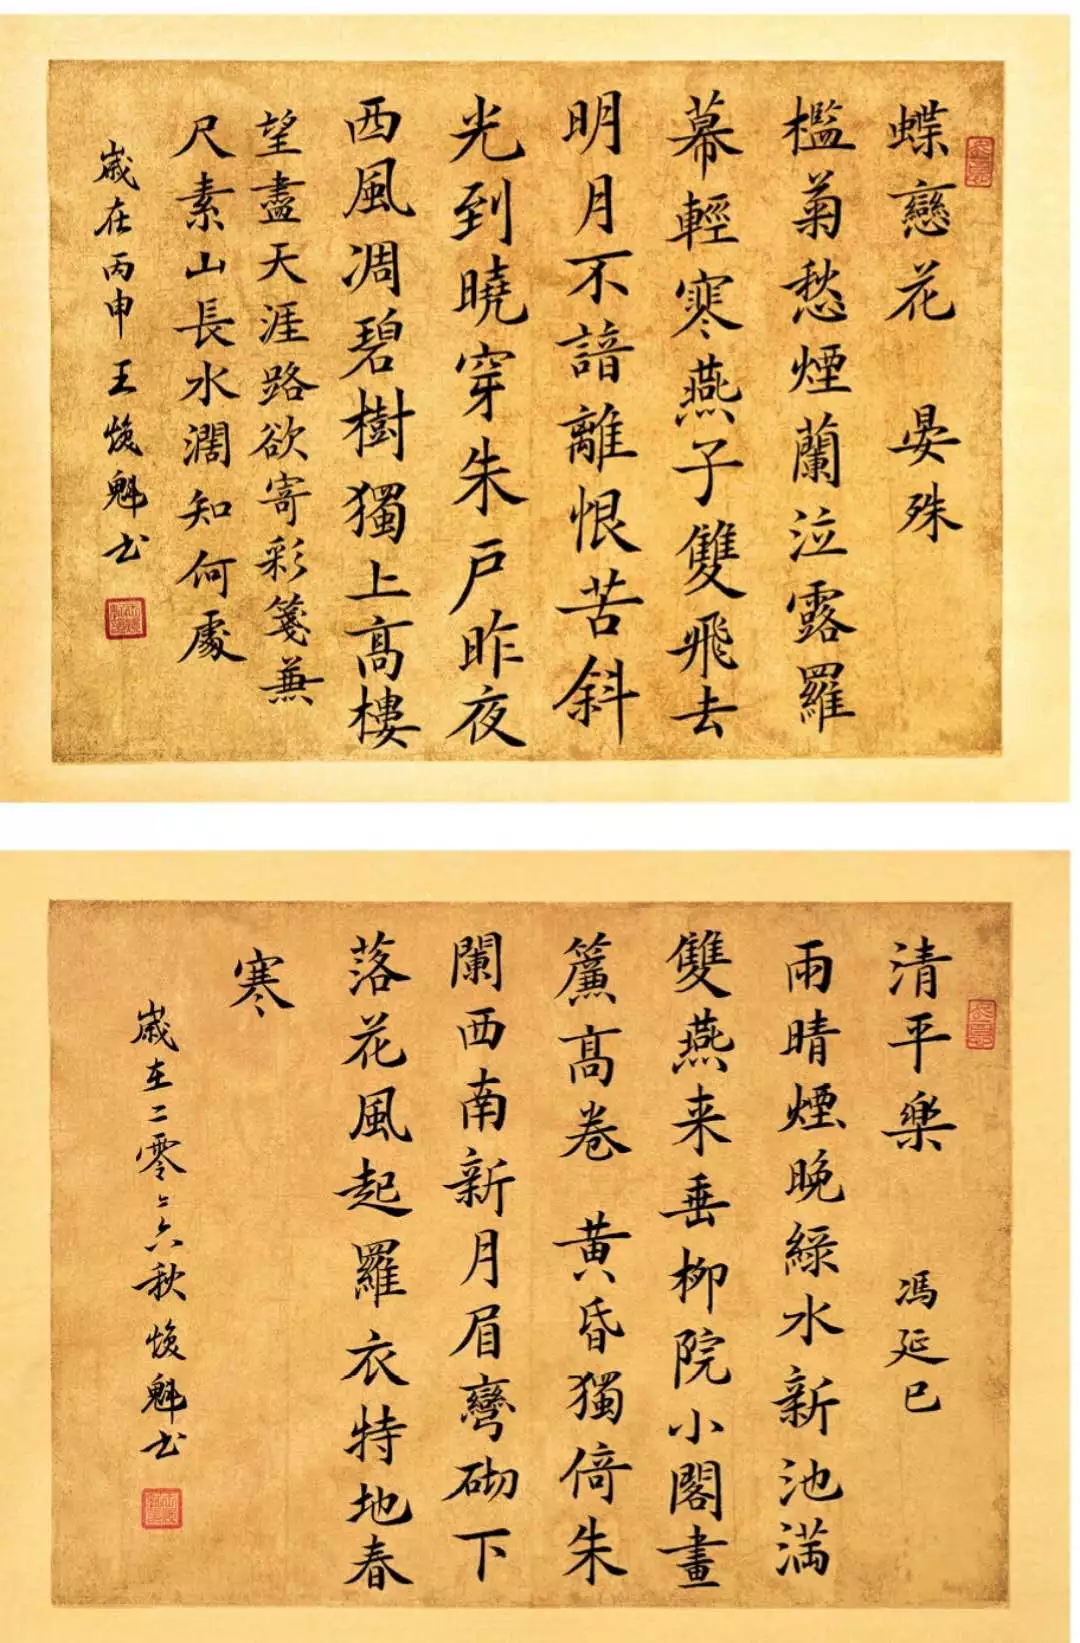 蝶戀花 晏殊
檻菊愁煙蘭泣露羅
幕輕寒燕子雙飛去
明月不諳離恨苦斜
光到曉穿朱戶昨夜
西風凋碧樹獨上高樓
望盡天涯路欲寄彩箋兼
尺素山長水濶知何處
歲在丙申王煥魁书
清平樂 馮延巳
雨晴煙晚綠水新池满
雙燕来垂柳院小閣畫
簾高卷 黄昏獨倚朱
闌西南新月眉彎砌下
落花風起羅衣特地春
寒
歲在二零二六秋煥魁书